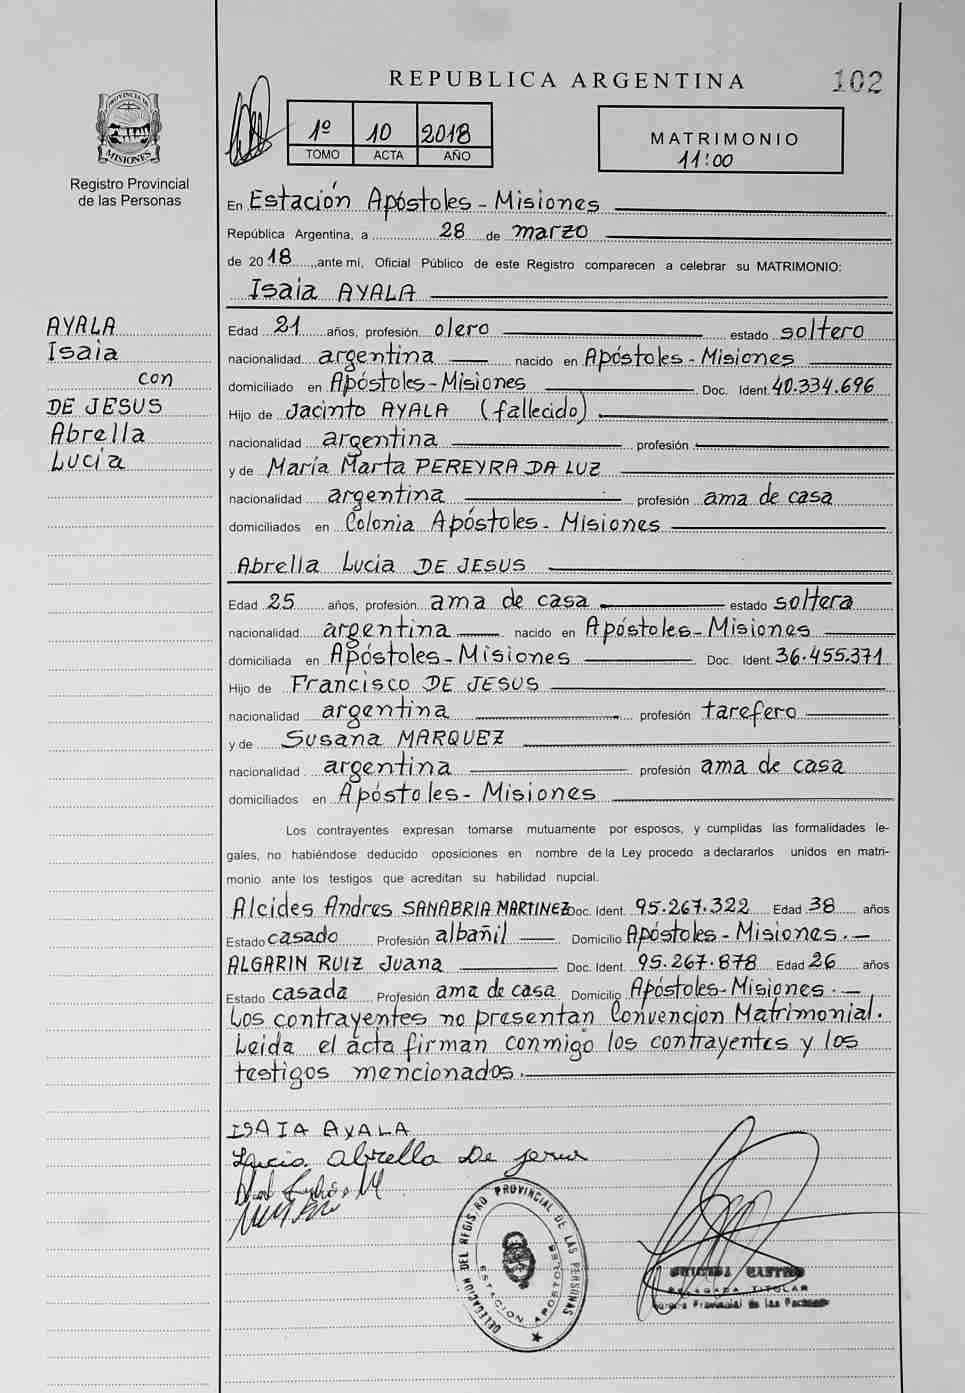 REPUBLICA ARGENTINA
102
PROVINCIA DE
MISIONES
Registro Provincial
de las Personas
1º 10 2018
TOMO ACTA AÑO
MATRIMONIO
11:00
En Estación Apóstoles - Misiones
República Argentina, a 28 de marzo
de 2018, ante mí, Oficial Público de este Registro comparecen a celebrar su MATRIMONIO:
Isaia AYALA
AYALA
Isaia
con
DE JESUS
Abrella
Lucia
Edad 21 años, profesión olero estado soltero
nacionalidad argentina nacido en Apóstoles - Misiones
domiciliado en Apóstoles - Misiones Doc. Ident. 40.334.696
Hijo de Jacinto AYALA (fallecido)
nacionalidad argentina profesión
y de María Marta PEREYRA DA LUZ
nacionalidad argentina profesión ama de casa
domiciliados en Colonia Apóstoles - Misiones
Abrella Lucia DE JESUS
Edad 25 años, profesión ama de casa estado soltera
nacionalidad argentina nacido en Apóstoles - Misiones
domiciliada en Apóstoles - Misiones Doc. Ident. 36.455.371
Hijo de Francisco DE JESUS
nacionalidad argentina profesión tarefero
y de Susana MARQUEZ
nacionalidad argentina profesión ama de casa
domiciliados en Apóstoles - Misiones
Los contrayentes expresan tomarse mutuamente por esposos, y cumplidas las formalidades le-
gales, no habiéndose deducido oposiciones en nombre de la Ley procedo a declararlos unidos en matri-
monio ante los testigos que acreditan su habilidad nupcial.
Alcides Andres SANABRIA MARTINEZ Doc. Ident. 95.267.322 Edad 38 años
Estado casado Profesión albañil Domicilio Apóstoles - Misiones.
ALGARIN RUIZ Juana Doc. Ident. 95.267.878 Edad 26 años
Estado casada Profesión ama de casa Domicilio Apóstoles - Misiones.
Los contrayentes no presentan Convencion Matrimonial.
Leida el acta firman conmigo los contrayentes y los
testigos mencionados.
ISAIA AYALA
Lucia Abrella De Jesus
DELEGACION DEL REGISTRO PROVINCIAL DE LAS PERSONAS
ESTACION APOSTOLES
CASTRO
DELEGADA TITULAR
Provincial de las Personas